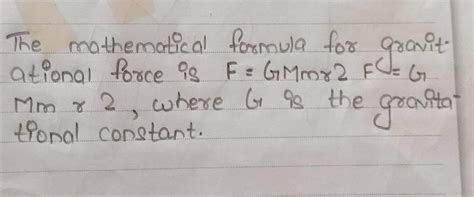 The mathematical formula for gravit-
ational force is F = GMmr2 F = G
Mm r 2, where G is the gravita-
tional constant.